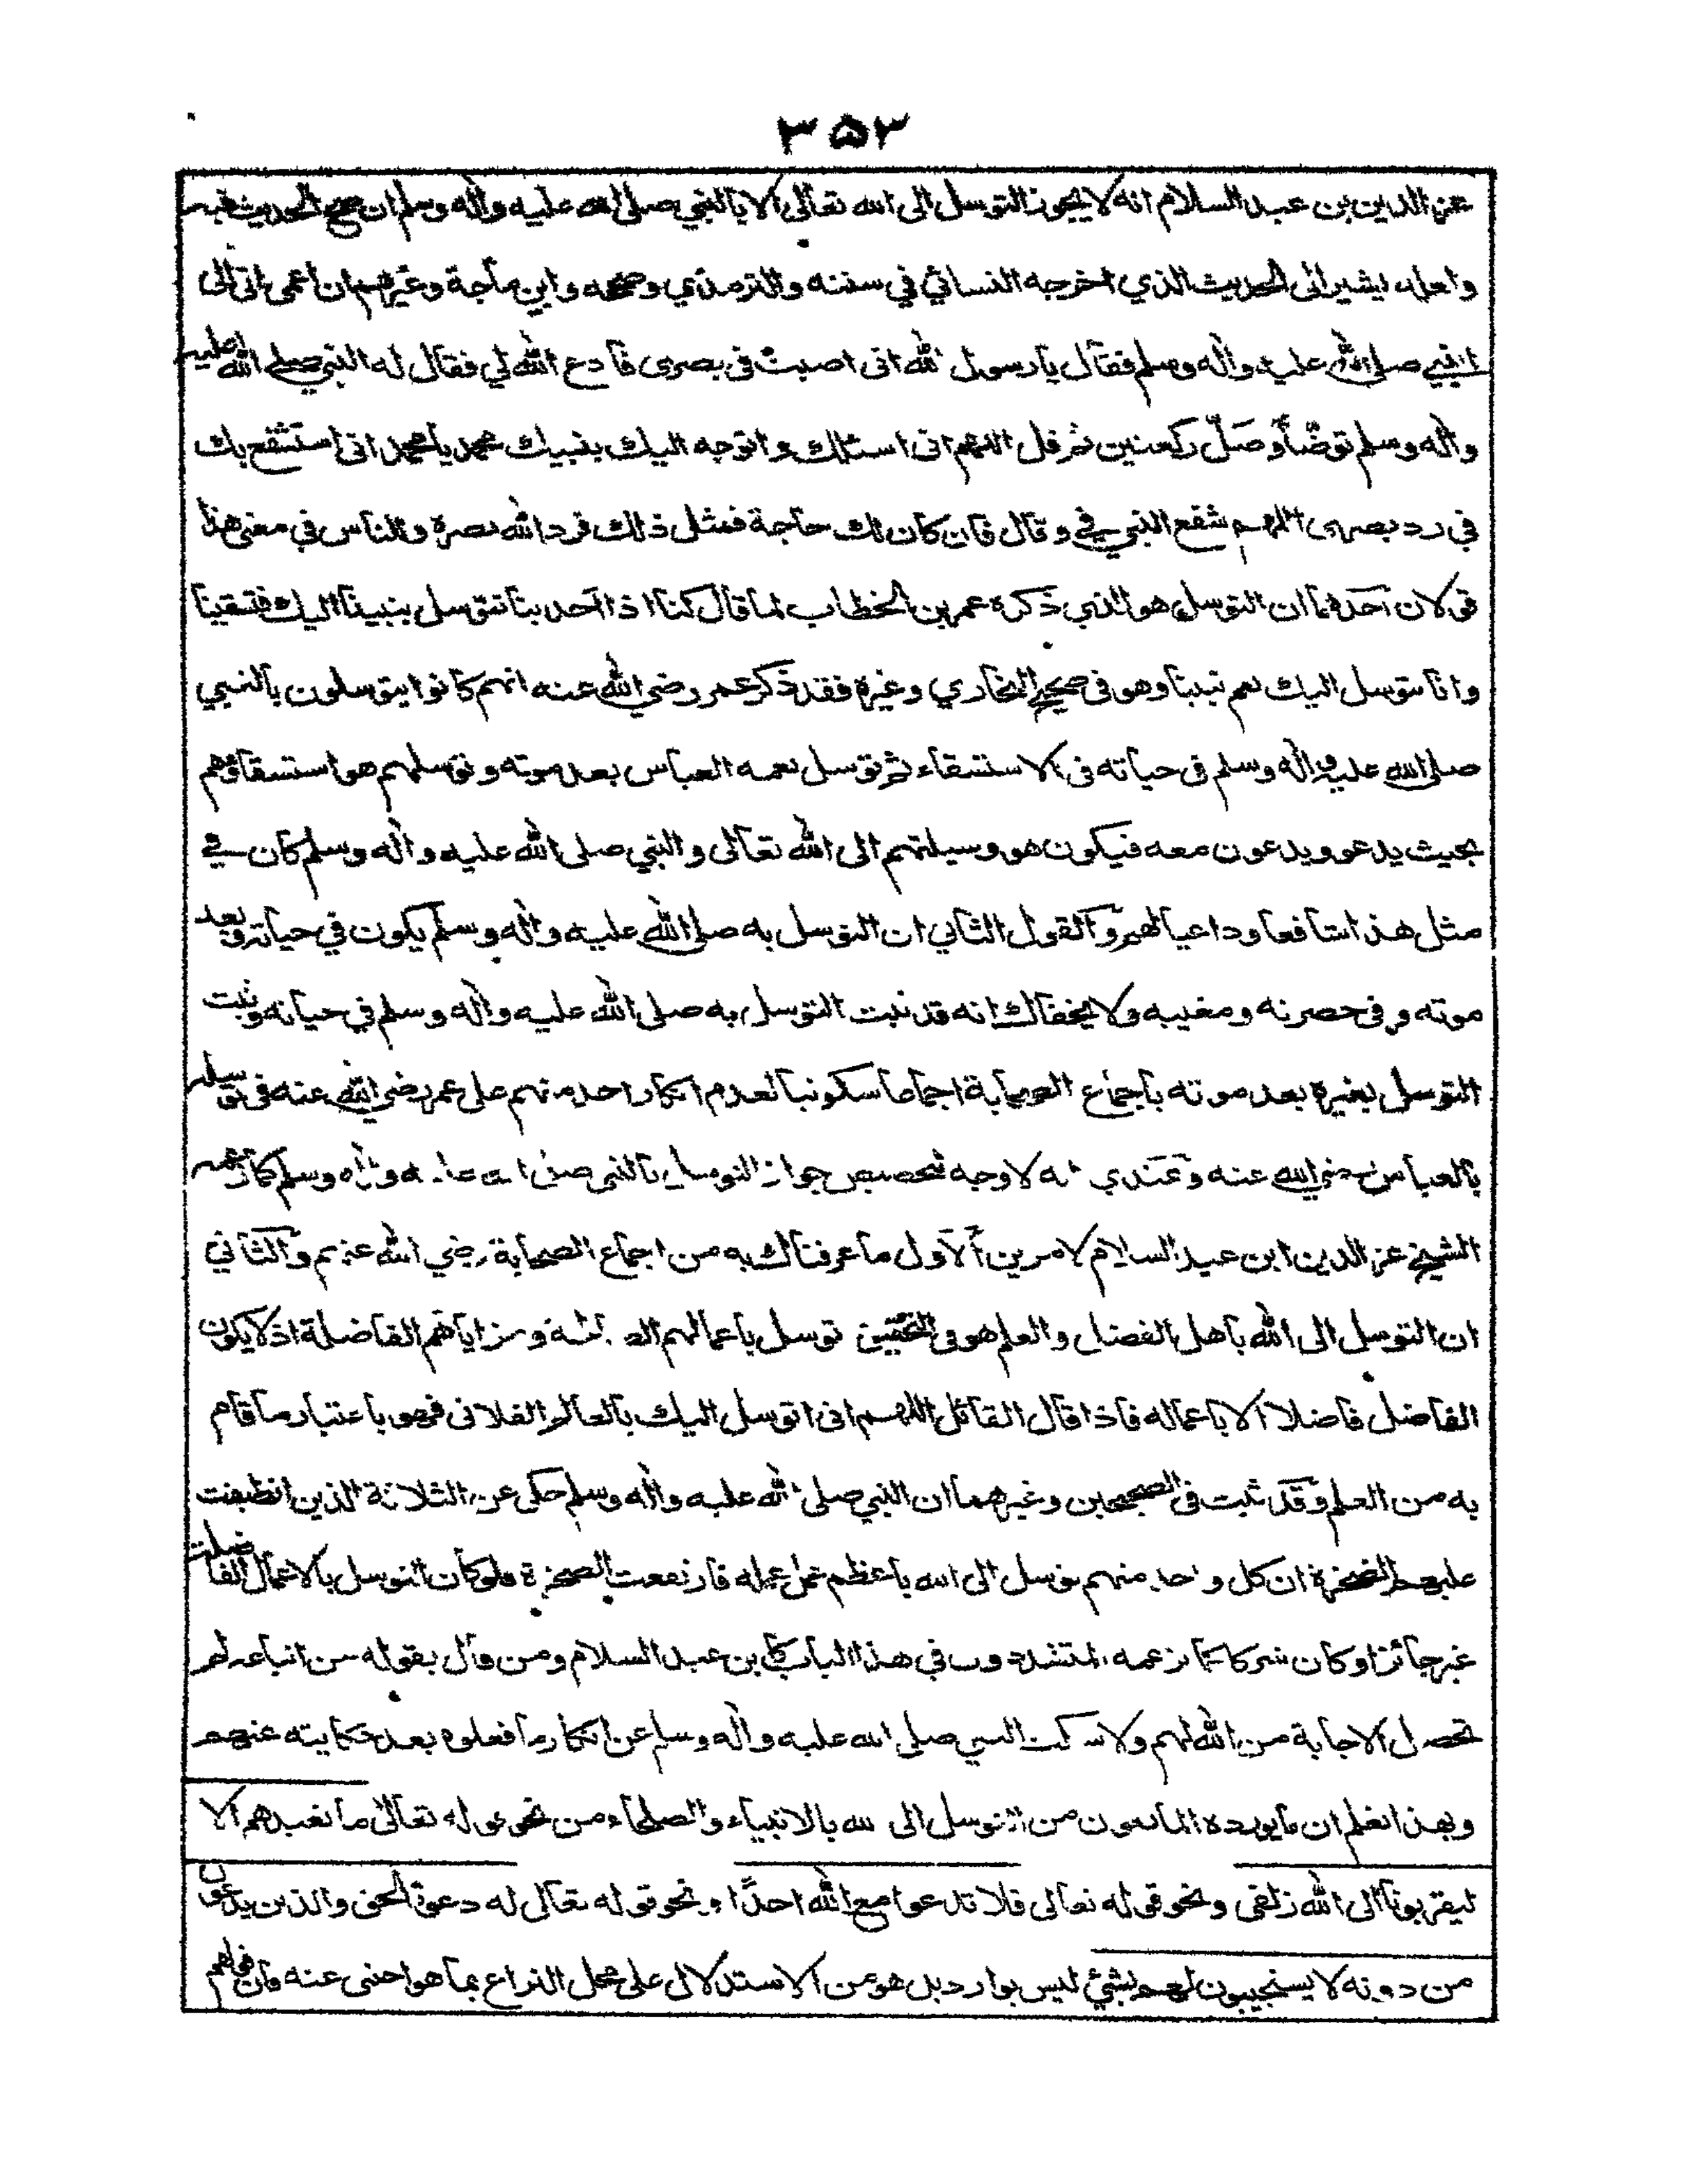 ٣٥٣
عز الدين بن عبد السلام انه لا يجوز التوسل الى الله تعالى الا بالنبي صلى الله عليه وآله وسلم ان صح الحديث فيه
ولعله يشير الى الحديث الذي اخرجه النسائي في سننه والترمذي وصححه وابن ماجة وغيرهم ان اعمى اتى الى
النبي صلى الله عليه وآله وسلم فقال يا رسول الله انى اصبت فى بصرى فادع الله لي فقال له النبي صلى الله عليه
وآله وسلم توضّأ وصلّ ركعتين ثم قل اللهم انى اسئلك واتوجه اليك بنبيك محمد يا محمد انى استشفع بك
في رد بصرى اللهم شفع النبي في وقال فان كان لك حاجة فمثل ذلك فرد الله بصره والناس في معنى هذا
قولان احدهما ان التوسل هو الذي ذكره عمر بن الخطاب لما قال كنا اذا اجدبنا نتوسل بنبينا اليك فتسقينا
وانا نتوسل اليك بعم نبينا وهو فى صحيح البخاري وغيره فقد ذكر عمر رضي الله عنه انهم كانوا يتوسلون بالنبي
صلى الله عليه وآله وسلم فى حياته فى الاستسقاء ثم توسل بعمه العباس بعد موته وتوسلهم هو استسقاؤهم
بحيث يدعو ويدعون معه فيكون هو وسيلتهم الى الله تعالى والنبي صلى الله عليه وآله وسلم كان في
مثل هذا شافعا وداعيا لهم والقول الثاني ان التوسل به صلى الله عليه وآله وسلم يكون في حياته وبعد
موته وفى حضرته ومغيبه ولا يخفاك انه قد ثبت التوسل به صلى الله عليه وآله وسلم في حياته وثبت
التوسل بغيره بعد موته باجماع الصحابة اجماعا سكوتيا لعدم انكار احد منهم على عمر رضي الله عنه فى توسله
بالعباس رضي الله عنه وعندي انه لا وجه لتخصيص جواز التوسل بالنبي صلى الله عليه وآله وسلم كما زعمه
الشيخ عز الدين ابن عبد السلام لامرين الاول ما عرفناك به من اجماع الصحابة رضي الله عنهم والثاني
ان التوسل الى الله باهل الفضل والعلم هو فى التحقيق توسل باعمالهم الصالحة ومزاياهم الفاضلة اذ لا يكون
الفاضل فاضلا الا باعماله فاذا قال القائل اللهم انى اتوسل اليك بالعالم الفلانى فهو باعتبار ما قام
به من العلم وقد ثبت فى الصحيحين وغيرهما ان النبي صلى الله عليه وآله وسلم حكى عن الثلاثة الذين انطبقت
عليهم الصخرة ان كل واحد منهم توسل الى الله باعظم عمل عمله فارتفعت الصخرة فلو كان التوسل بالاعمال الفاضلة
غير جائز او كان شركا كما زعمه المتشددون في هذا الباب كابن عبد السلام ومن قال بقوله من اتباعه لم
تحصل الاجابة من الله لهم ولا سكت النبي صلى الله عليه وآله وسلم عن انكار ما فعلوه بعد حكايته عنهم
وبهذا تعلم ان ما يورده المانعون من التوسل الى الله بالانبياء والصلحاء من نحو قوله تعالى ما نعبدهم الا
ليقربونا الى الله زلفى ونحو قوله تعالى فلا تدعوا مع الله احدًا ونحو قوله تعالى له دعوة الحق والذين يدعون
من دونه لا يستجيبون لهم بشئ ليس بوارد بل هو من الاستدلال على محل النزاع بما هو اجنبى عنه فان قولهم